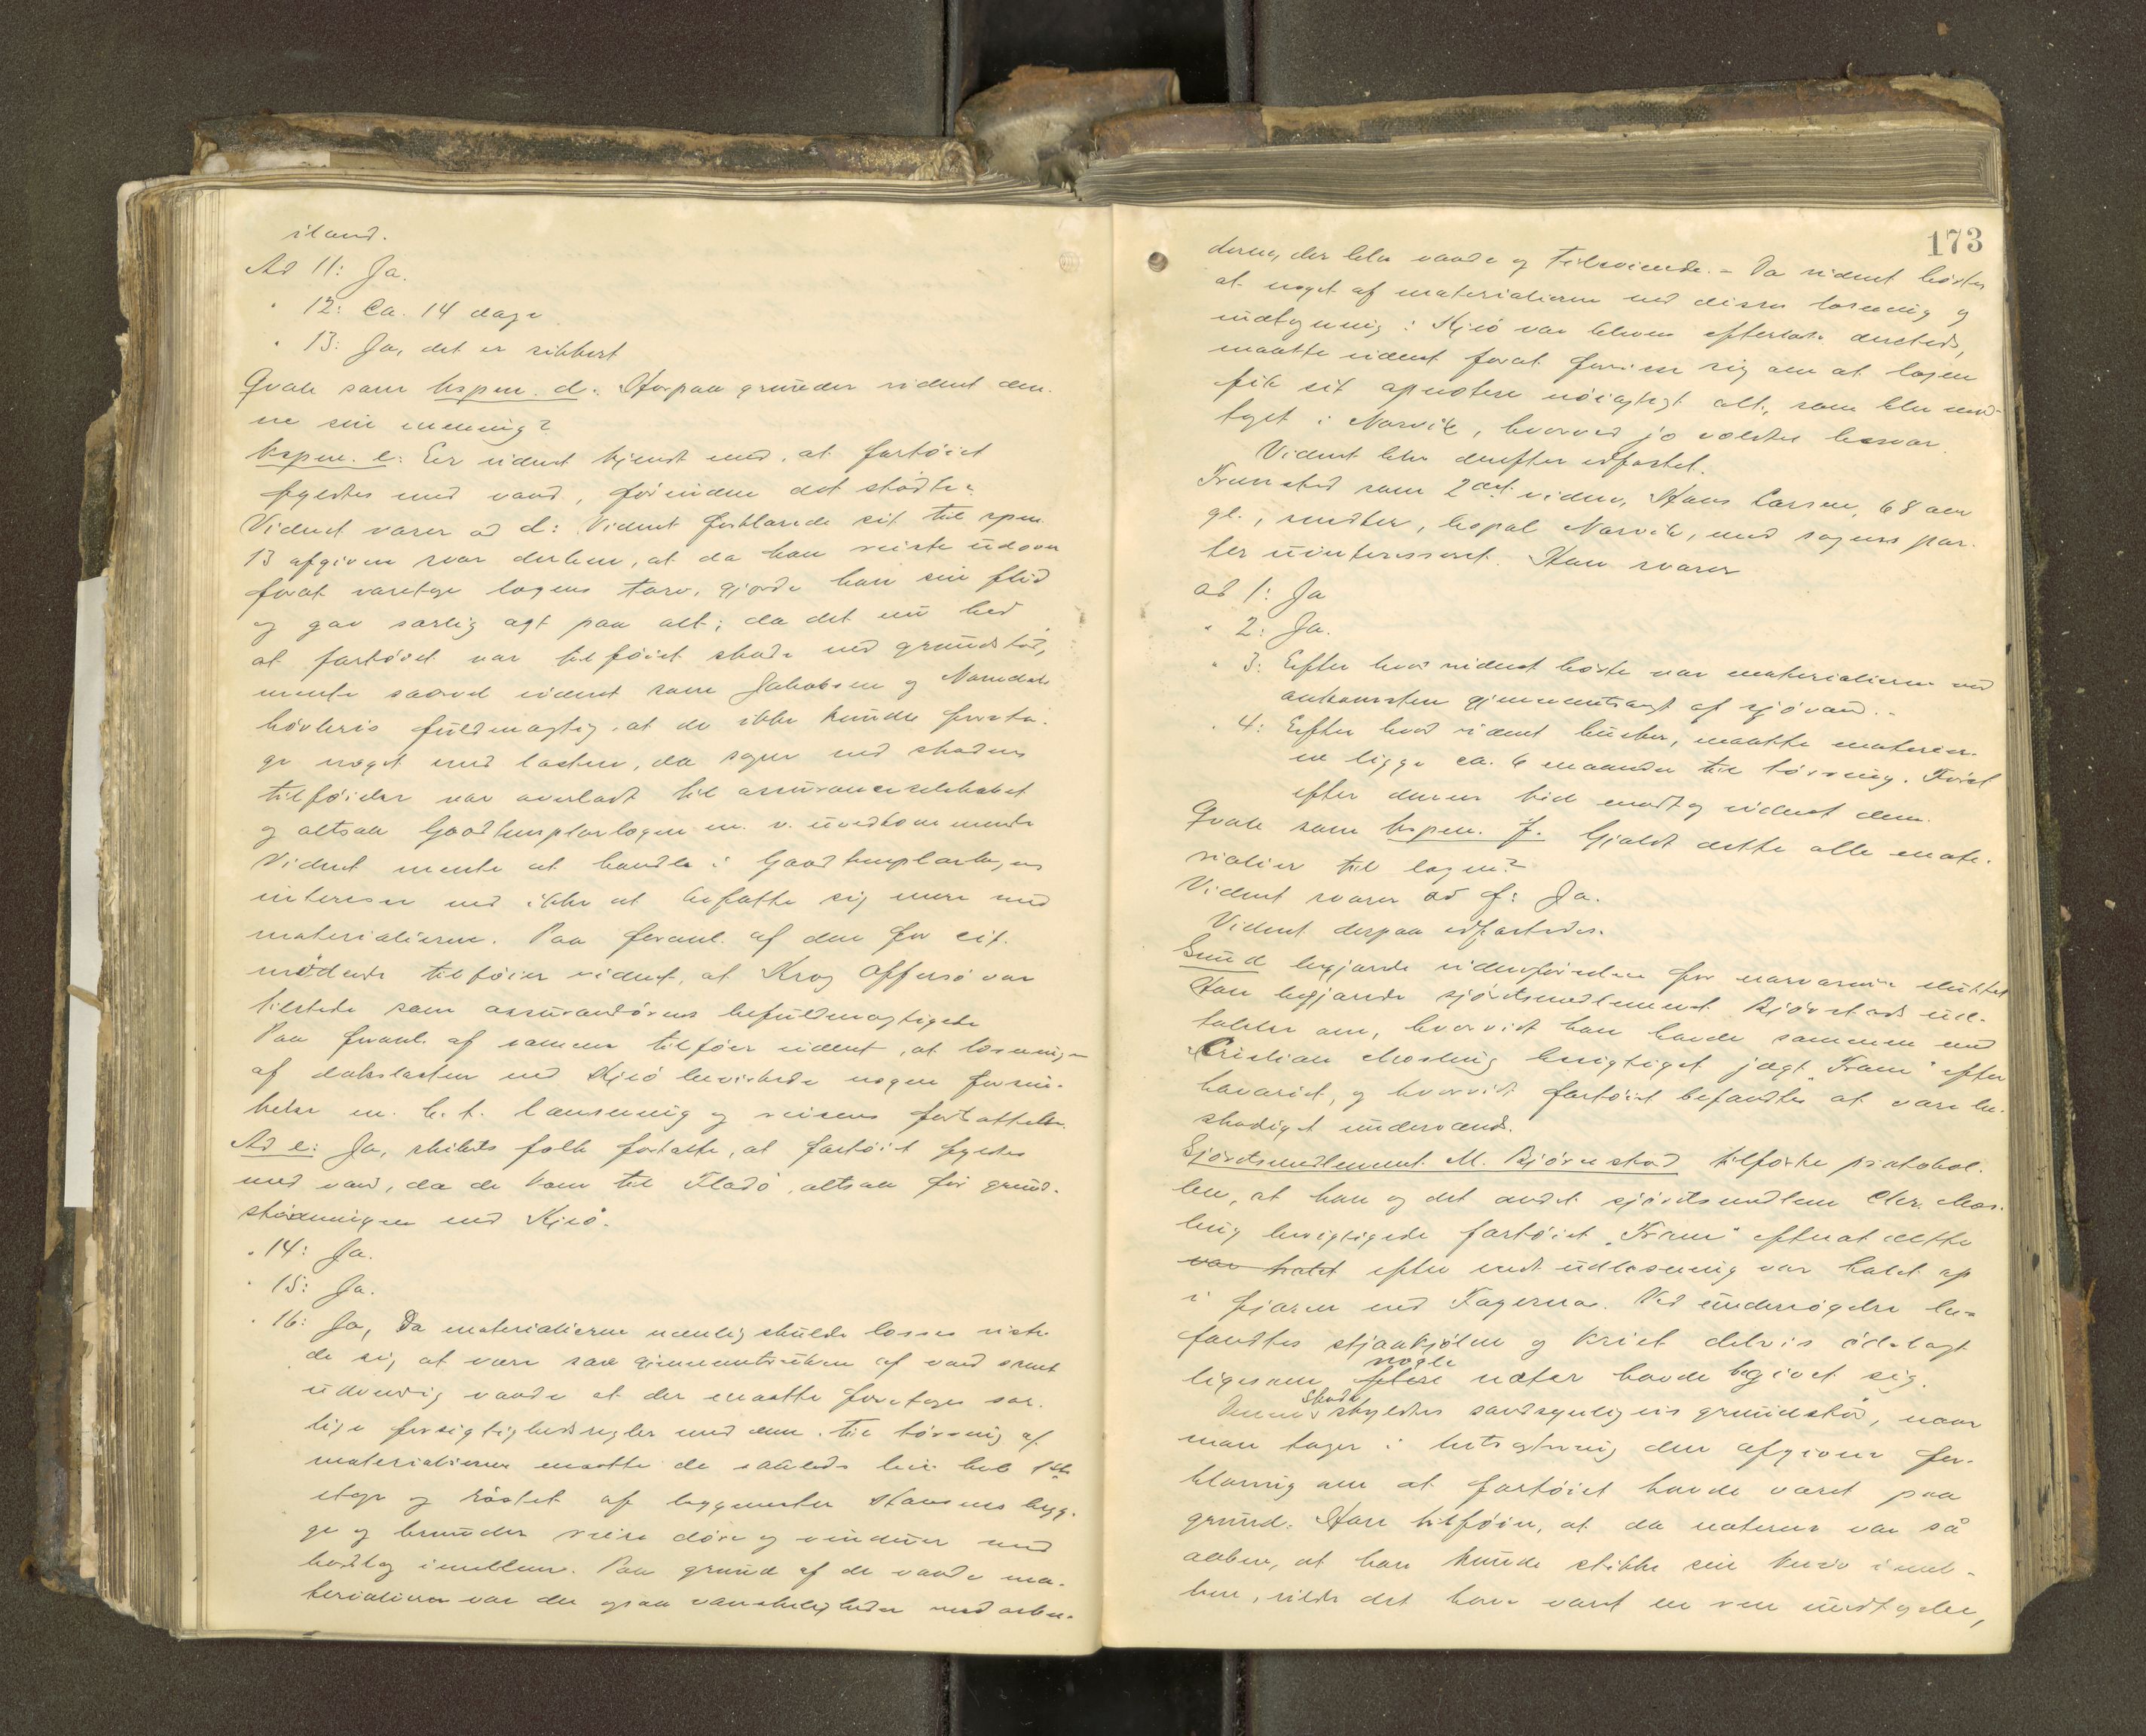 iland.
Ad 11: Ja.
" 12: Ca. 14 dage
" 13: Ja, det er sikkert
Qvale som kspm. d: Hvorpaa grunder vidnet den-
ne sin mening?
Kspm. e: Er vidnet kjendt med, at fartøiet
fyldtes med vand, förinden det stödte?
Vidnet svarer ad d: Vidnet forklarede sit til spm.
13 afgivne svar derhen, at da han reiste udover
forat varetage logens tarv, gjorde han sin flid
og gav særlig agt paa alt; da det nu hed
at fartøiet var tilføiet skade ved grundstöd,
mente saavel vidnet som Jakobsen og Namdals
hövleris fuldmægtig, at de ikke kunde foreta-
ge noget med lasten, da sagen med skadens
tilføielse var overladt til assuranceselskabet
og altsaa Goodtemplarlogen m. v. uvedkommende
Vidnet mente at handle i Goodtemplarlogens
interesse ved ikke at befatte sig mere med
materialierne. Paa foranl. af den for cit.
mødende tilføier vidnet, at Krog Offersö var
tilstede som assurandørens befuldmægtigede
Paa foranl. af samme tilføier vidnet, at losningen
af dækslasten ved Kjeö bevirkede nogen forsin-
kelse m. h. t. lænsning og reisens fortsættelse.
Ad e: Ja, skibets folk fortalte, at fartøiet fyldtes
med vand, da de kom til Fladö, altsaa för grund-
stödningen ved Kjeö.
" 14: Ja.
" 15: Ja.
" 16: Ja, Da materialierne nemlig skulde losses viste
de sig at være saa gjennemtrukne af vand samt
udvendig vaade at der maatte foretages sær-
lige forsigtighedsregler med dem. Til tørrning af
materialierne maatte de saaledes leie hele 1ste
etage og röstet af byggmester Hansens byg-
ge og benunder reise døre og vinduer med
bordlag imellem. Paa grund af de vaade ma-
terialier var der ogsaa vanskeligheder med arbei-
173
derne, der blev vaade og tilsvinede. – Da vidnet hørte
at noget af materialierne ved disses losning og
indtagning i Kjeö var bleven efterladt dersteds,
maatte vidnet forat forvisse sig om at logen
fik sit opnotere nöiagtigt alt, som blev mod-
taget i Narvik, hvorved jo voldtes besvær.
Vidnet blev derefter edfæstet.
Fremstod som 2det vidne, Hans Larsen, 68 aar
gl., snedker, bopæl Narvik, med sagens par-
ter uinteresseret. Han svarer
ad 1: Ja
" 2: Ja.
" 3: Efter hvad vidnet hørte var materialierne ved
ankomsten gjennemtrængt af sjövand. –
" 4: Efter hvad vidnet husker, maatte materier-
ne ligge ca. 6 maaneder til tørrning. Först
efter denne tid modtog vidnet dem.
Qvale som kspm. f. Gjaldt dette alle mate-
rialier til logen?
Vidnet svarer ad f: Ja.
Vidnet derpaa edfæstedes.
Sund begjærede vidneførselen for nærværende sluttet
Han begjærede sjöretsmedlemmet Bjørnstad ud-
talelse om, hvorvidt han havde sammen med
Kristian Mosling besigtiget jægt "Fram" efter
havariet, og hvorvidt fartøiet befandtes at være be-
skadiget undervands.
Sjöretsmedlemmet M. Bjørnstad tilførte protokol-
len, at han og det andet sjöretsmedlem Chr. Mos-
ling besigtigede fartøiet "Fram" efterat dette
var halet efter endt udlosning var halet op
i fjæren ved Fagernæs. Ved undersøgelse be-
fandtes straakjølen og kriet delvis ödelagt
nogle
ligesom flere nater havde begivet sig.
skade
Denne skyldtes sandsynligvis grundstöd, naar
man tager i betragtning den afgivne for-
klaring om at fartøiet havde været paa
grund. Han tilføier, at da naterne var så
aabne, at han kunde stikke sin kniv imel-
lem, vilde det have været en ren umulighed,